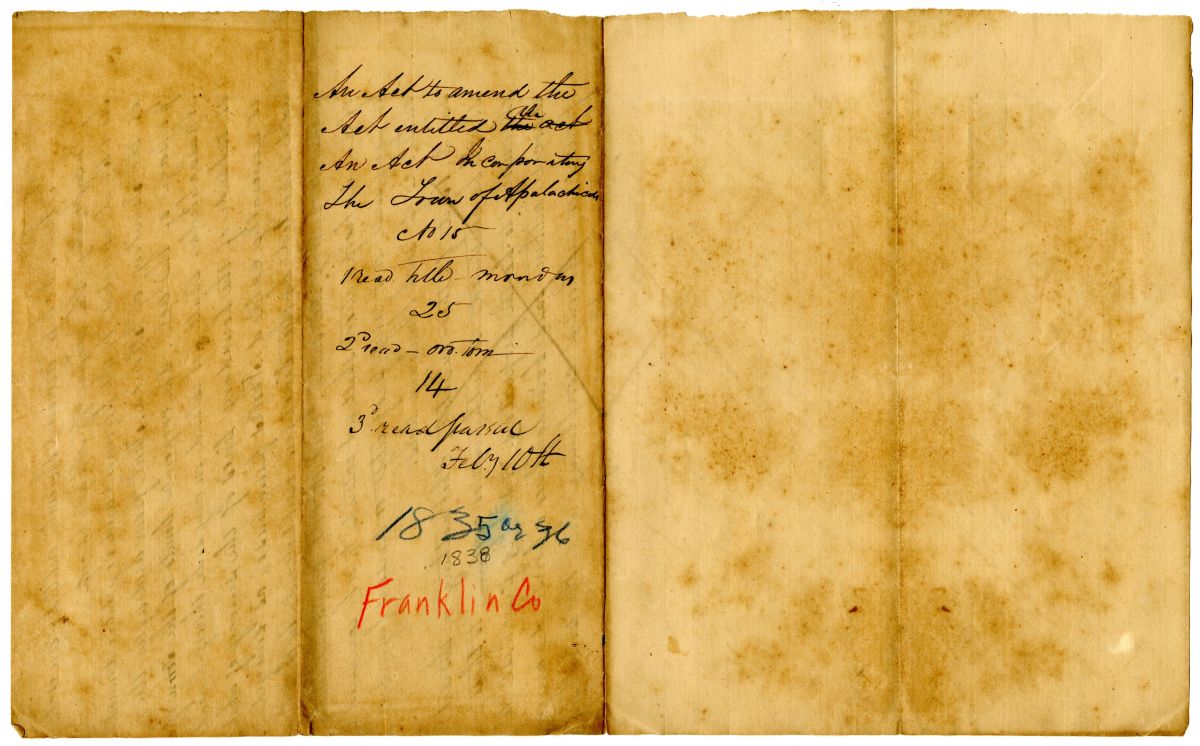 An Act to amend the
Act entitled the act
An Act Incorporating
The Town of Apalachicola
No 15
1 read. title - monday
25
2d read - ord. tom
14
3d read passed
Feby 10th
1835 or 36
1838
Franklin Co